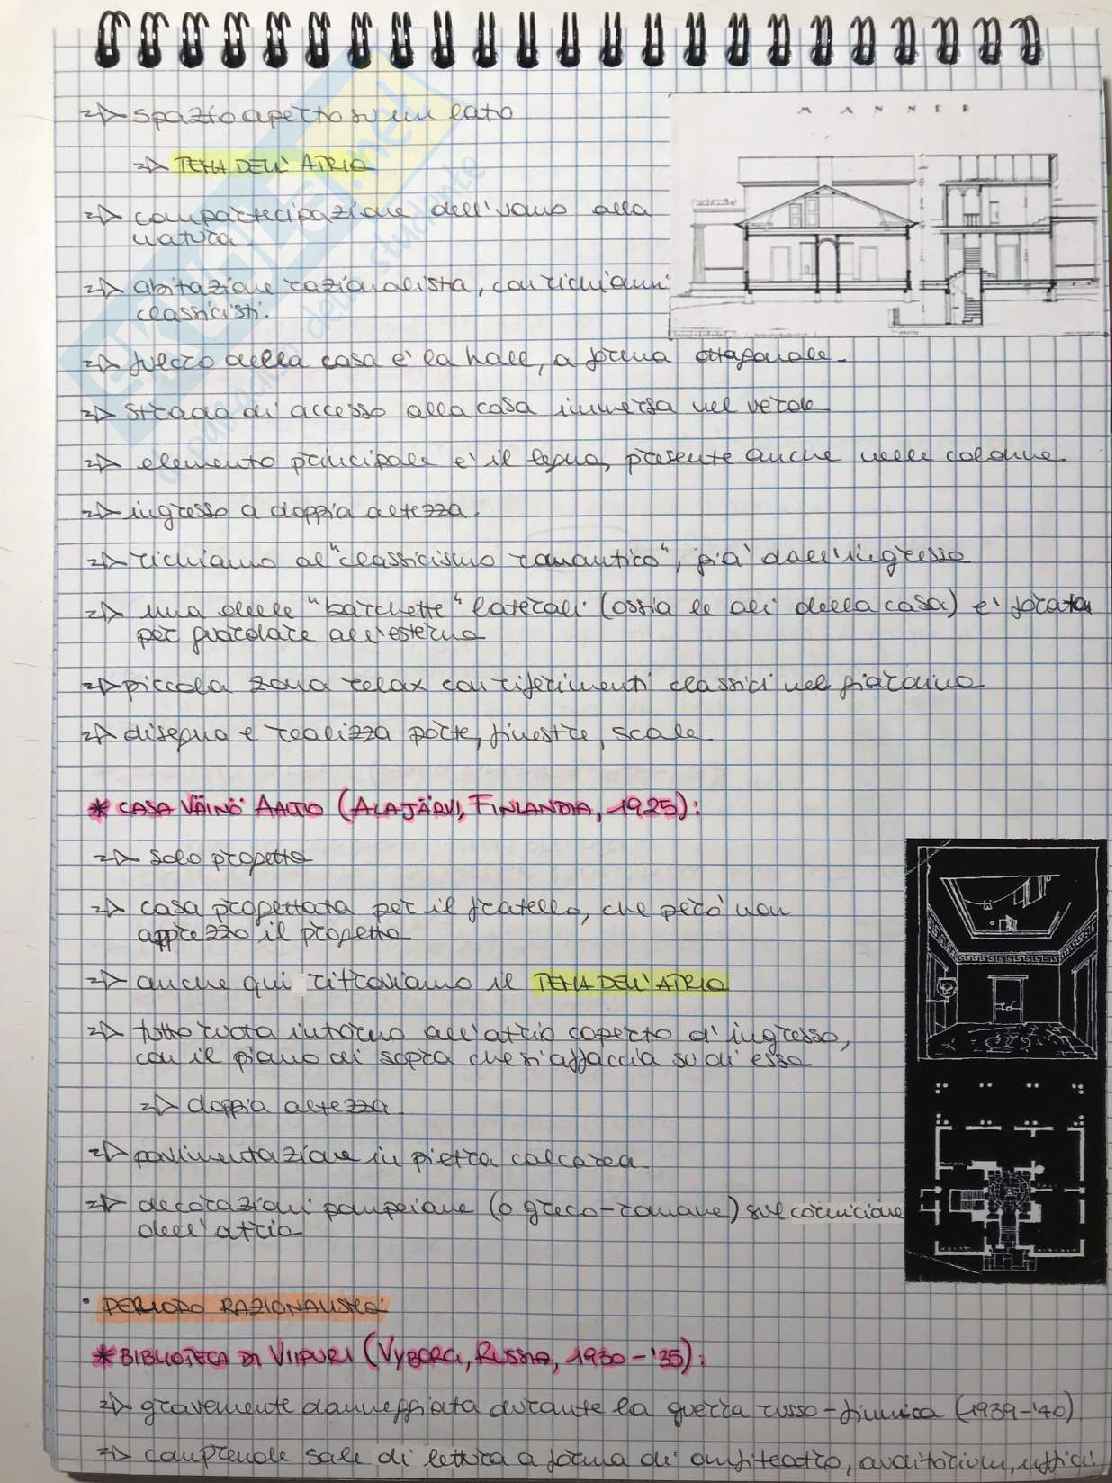 => spazio aperto su un lato
=> TEMA DELL'ATRIO
=> compartecipazione dell'uomo alla
natura.
=> abitazione razionalista, con richiami
classicisti.
=> fulcro della casa è la hall, a forma ottagonale.
=> strada di accesso alla casa immersa nel verde
=> elemento principale è il legno, presente anche nelle colonne.
=> ingresso a doppia altezza.
=> richiamo al "classicismo romantico", già dall'ingresso
=> una delle "barchette" laterali (ossia le ali della casa) è forata
per guardare all'esterno
=> piccola zona relax con riferimenti classici nel giardino
=> disegna e realizza porte, finestre, scale.
* CASA VÄINÖ AALTO (ALAJÄRVI, FINLANDIA, 1925):
=> solo progetto
=> casa progettata per il fratello, che però non
apprezzò il progetto
=> anche qui ritroviamo il TEMA DELL'ATRIO
=> tutto ruota intorno all'atrio coperto d'ingresso,
con il piano di sopra che si affaccia su di esso
=> doppia altezza
=> pavimentazione in pietra calcarea.
=> decorazioni pompeiane (o greco-romane) sul cornicione
dell'atrio
• PERIODO RAZIONALISTA
* BIBLIOTECA DI VIIPURI (VYBORG, RUSSIA, 1930-'35):
=> gravemente danneggiata durante la guerra russo-finnica (1939-'40)
=> comprende sale di lettura a forma di anfiteatro, auditorium, uffici,